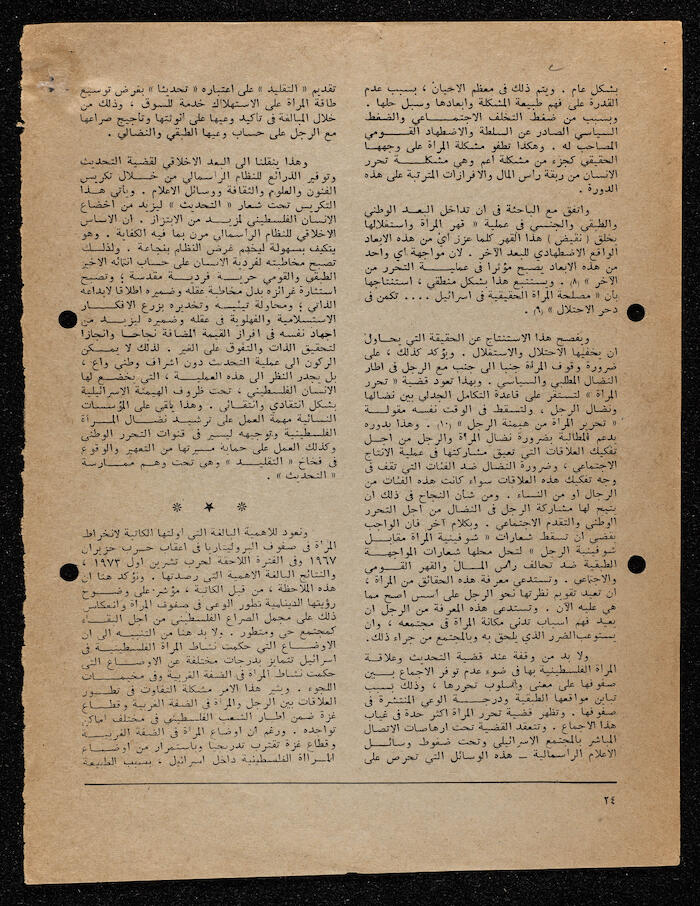 بشكل عام . ويتم ذلك في معظم الاحيان ، بسبب عدم
القدرة على فهم طبيعة المشكلة وابعادها وسبل حلها .
وبسبب من ضغط التخلف الاجتمـــاعي والضغط
السياسي الصادر عن السلطة والاضطهاد القــــومي
المصاحب له . وهكذا تطفو مشكلة المرأة على وجههــا
الحقيقي كجزء من مشكلة اعم وهي مشكلــــة تحرر
الانسان من ربقة رأس المال والافرازات المترتبة على هذه
الدورة .
واتفق مع الباحثة في ان تداخل البعـــد الوطني
والطبقي والجنسي في عملية « قهر المرأة واستغلالها
يخلق ( نقيض ) هذا القهر كلما عزز أي من هذه الابعاد
الواقع الاضطهادي للبعد الآخر . لان مواجهة اي واحد
من هذه الابعاد يصبح مؤثرا في عمليـــة التحرر من
الآخر » (٨) . ويستتبع هذا بشكل منطقي ، استنتاجها
بأن « مصلحة المرأة الحقيقية في اسرائيل .... تكمن في
دحر الاحتلال » (٩) .
ويفصح هذا الاستنتاج عن الحقيقة التي يحــاول
ان يخفيها الاحتلال والاستقلال . ويؤكد كذلك ، على
ضرورة وقوف المرأة جنبا الى جنب مع الرجل في اطار
النضال المطلبي والسياسي . وبهذا تعود قضية « تحرر
المرأة » لتستقر على قاعدة التكامل الجدلي بين نضالها
ونضال الرجل ، ولتسقط في الوقت نفسه مقولـــة
« تحرير المرأة من هيمنة الرجل » (١٠) . وهذا بدوره
يدعم المطالبة بضرورة نضال المرأة والرجل من اجـل
تفكيك العلاقات التي تعيق مشاركتها في عملية الانتاج
الاجتماعي ، وضرورة النضال ضد الفئات التي تقف في
وجه تفكيك هذه العلاقات سواء كانت هذه الفئات من
الرجال أو من النساء . ومن شأن النجاح في ذلك ان
يتيح لها مشاركة الرجل في النضال من اجل التحرر
الوطني والتقدم الاجتماعي . وبكلام آخر فان الواجب
يقضي ان تسقط شعارات « شوفينية المرأة مقابـــل
شوفينية الرجل » لتحل محلها شعارات المواجهـــة
الطبقية ضد تحالف رأس المــال والقهر القومــي
والاجتماعي . وتستدعي معرفة هذه الحقائق من المرأة ،
ان تعيد تقويم نظرتها نحو الرجل على اسس اصح مما
هي عليه الآن . وتستدعي هذه المعرفة من الرجل ان
يعيد فهم اسباب تدني مكانة المرأة في مجتمعه ، وان
يستوعب الضرر الذي يلحق به وبالمجتمع من جراء ذلك.
ولا بد من وقفة عند قضية التحديث وعلاقـة
المرأة الفلسطينية بها في ضوء عدم توفر الاجماع بـــين
صفوفها على معنى واسلوب تحررها ، وذلك بسبب
تباين مواقعها الطبقية ودرجــة الوعي المنتشرة في
صفوفها . وتظهر قضية تحرر المرأة اكثر حدة في غياب
هذا الاجماع . وتتعقد القضية تحت ارهاصات الاتصال
المباشر بالمجتمع الاسرائيلي وتحت ضغوط وسائــل
الاعلام الرأسمالية ــ هذه الوسائل التي تحرص على
تقديم « التقليد » على اعتباره « تحديثا » بغرض توسيع
طاقة المرأة على الاستهلاك خدمة للسوق ، وذلك من
خلال المبالغة في تأكيد وعيها على انوثتها وتأجيج صراعها
مع الرجل على حساب وعيها الطبقي والنضالي .
وهذا ينقلنا الى البعد الاخلاقي لقضية التحديث
وتوفير الذرائع للنظام الرأسمالي من خـــلال تكريس
الفنون والعلوم والثقافة ووسائل الاعلام . ويأتي هــذا
التكريس تحت شعار « التحديث » ليزيد من اخضاع
الانسان الفلسطيني لمزيــد من الابتزاز . ان الاساس
الاخلاقي للنظام الرأسمالي مرن بما فيه الكفاية . وهو
يتكيف بسهولة ليخدم غرض النظام بنجاعة . ولذلــك
تصبح مخاطبته لفردية الانسان على حساب انتمائه الاخير
الطبقي والقومي حريــة فرديــة مقدسة ؛ وتصبح
استثارة غرائزه بدل مخاطبة عقله وضميره اطلاقا لابداعه
الذاتي ؛ ومحاولة تيئيسه وتخديره بزرع الافكــار
الاستسلامية والفهلوية في عقله وضميره ليزيـــد من
اجهاد نفسه في افراز القيمة المضافة نجاحا وانجازا
لتحقيق الذات والتفوق على الغير . لذلك لا يمــكن
الركون الى عملية التحديث دون اشراف وطني واع ،
بل يجدر النظر الى هذه العمليـــة ، التي يخضــع لها
الانسان الفلسطيني ، تحت ظروف الهيمنة الاسرائيلية
بشكل انتقادي وانتقائي . وهذا يلقي على المؤسسات
النسائية مهمة العمل على ترشيــد نضــال المــرأة
الفلسطينية وتوجيهه ليسير في قنوات التحرر الوطني
وكذلك العمل على حماية مسيرتها من التعهير والوقوع
في فخاخ « التقليــد » وهي تحت وهــم ممــارسة
« التحديث » .
* * *
ونعود للاهمية البالغة التي اولتها الكاتبة لانخراط
المرأة في صفوف البروليتاريا في اعقاب حرب حزيران
١٩٦٧ وفي الفترة اللاحقة لحرب تشرين اول ١٩٧٣ ،
والنتائج البالغة الاهمية التي رصدتها . ونؤكد هنا ان
هذه الملاحظة ، من قبل الكاتبة ، مؤشر على وضــوح
رؤيتها الدينامية لتطور الوعي في صفوف المرأة وانعكاس
ذلك على مجمل الصراع الفلسطيني من اجل البقــاء
كمجتمع حي ومتطور . ولا بد هنا من التنبيــه الى ان
الاوضــاع التي حكمت نشاط المرأة الفلسطينيــة في
اسرائيل تتمايز بدرجات مختلفة عن الاوضــاع التي
حكمت نشاط المرأة في الضفة الغربية وفي مخيمــات
اللجوء . ويثير هذا الامر مشكلة التفاوت في تطــور
العلاقات بين الرجل والمرأة في الضفة الغربية وقطــاع
غزة ضمن اطار الشعب الفلسطيني في مختلف اماكن
تواجده . ورغم ان اوضاع المرأة في الضفة الغربيـــة
وقطاع غزة تقترب تدريجيا وباستمرار من اوضــاع
المــرأة الفلسطينية داخل اسرائيل ، بسبب الطبيعة
٢٤